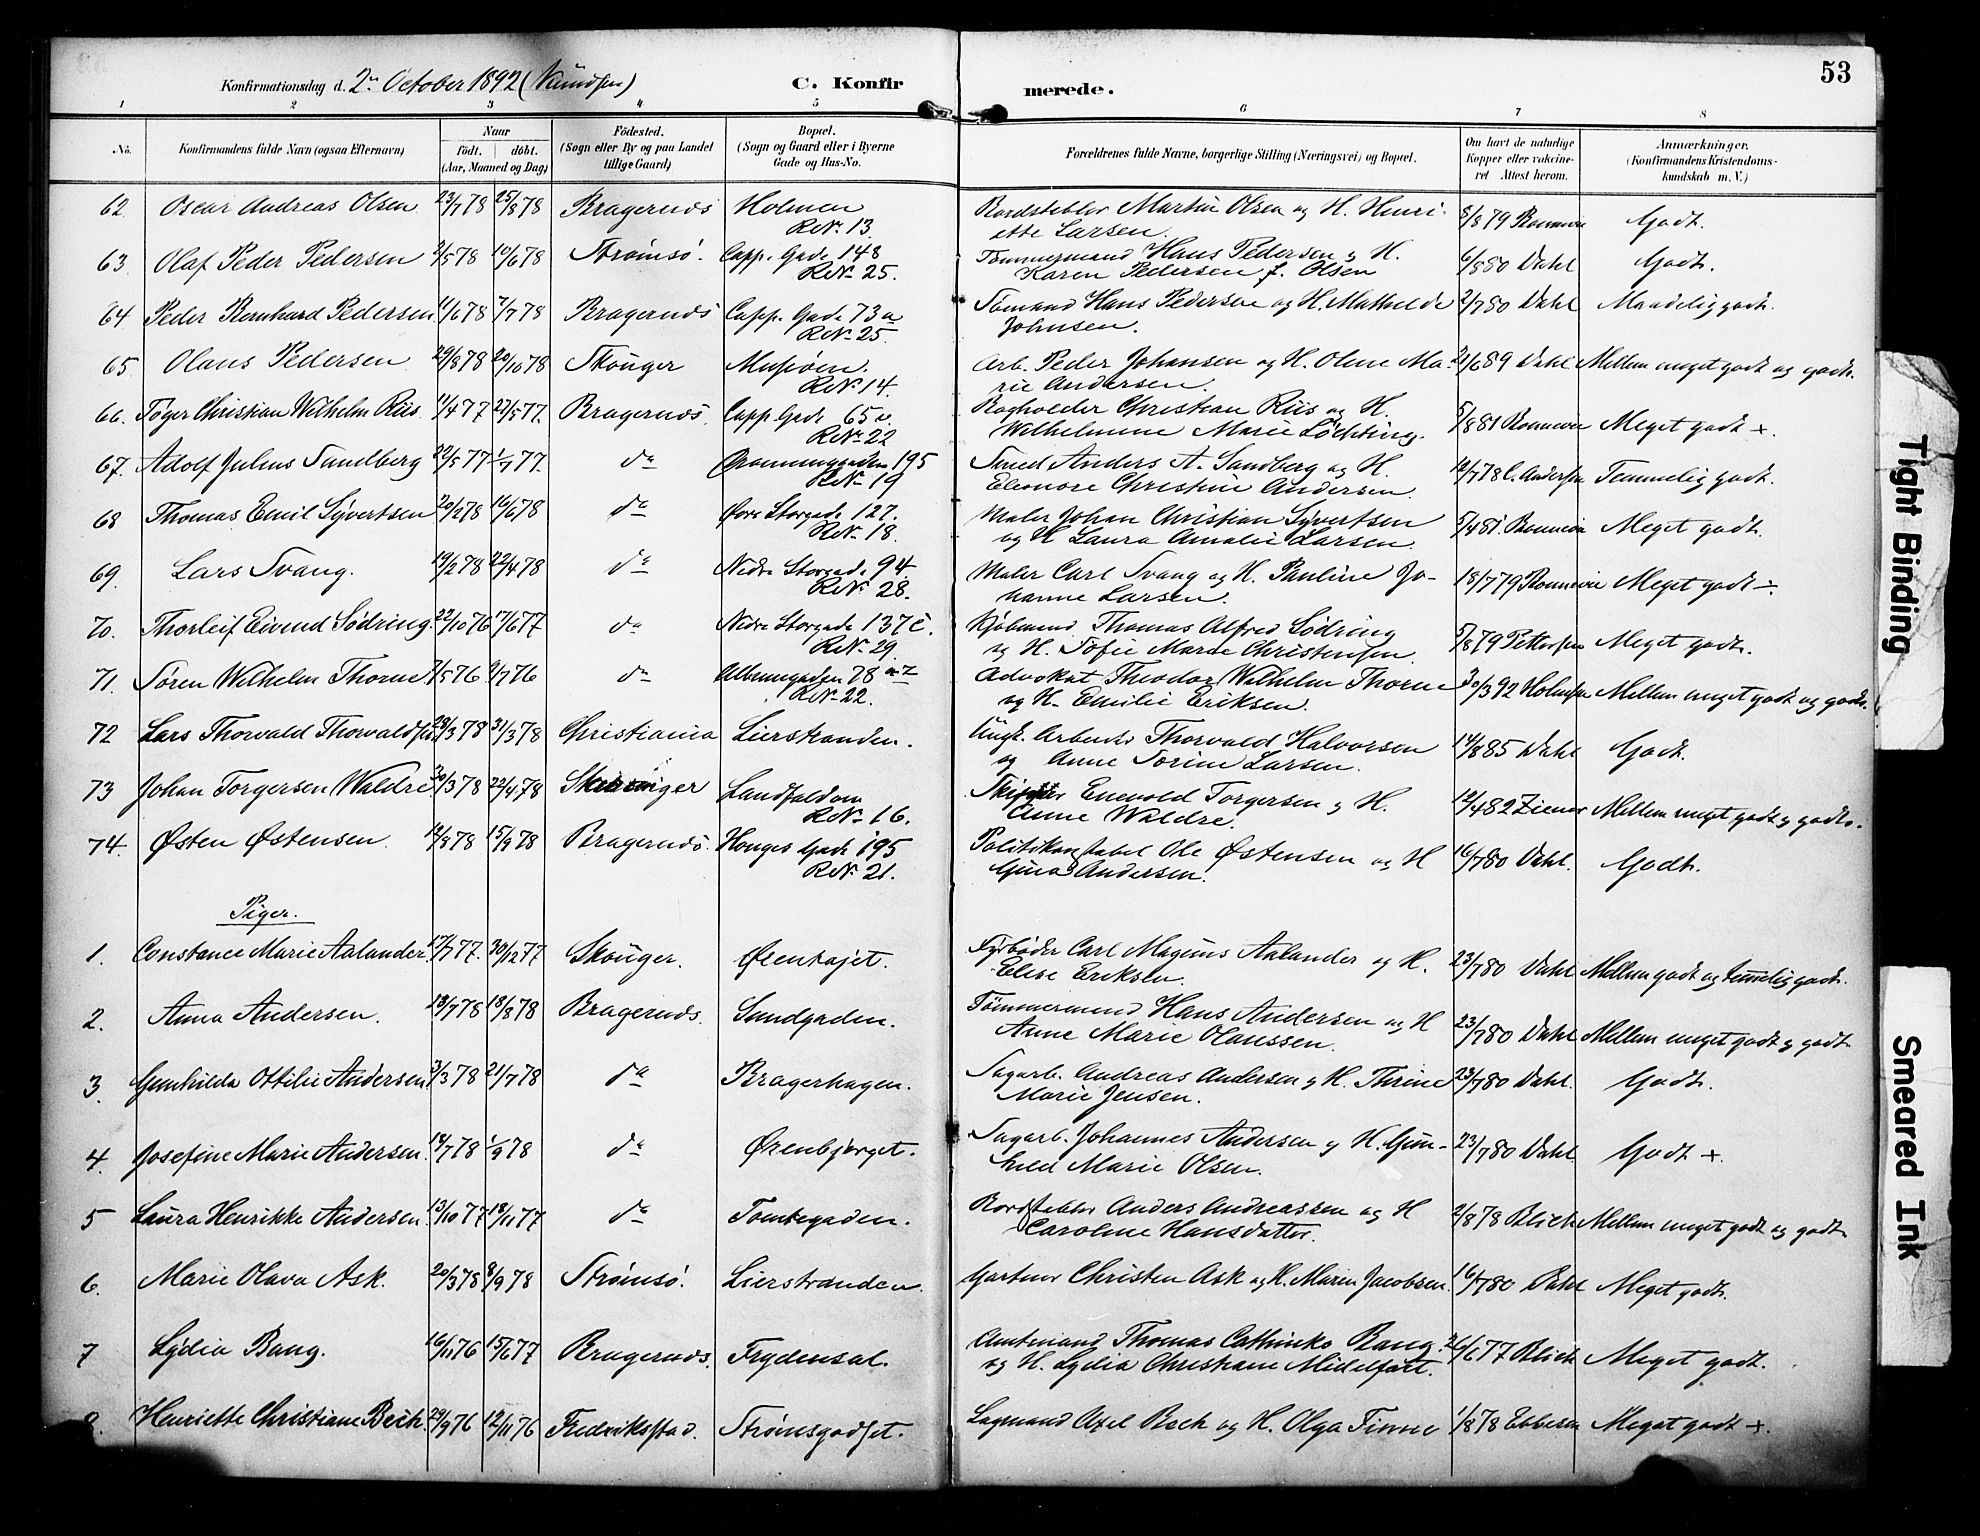 53
Konfirmationsdag d. 2n October 1892 (Knudsen)
C. Konfirmerede.
1 2 3 4 5 6 7 8
No.
Konfirmandens fulde Navn (ogsaa Efternavn)
Naar
födt. döbt.
(Aar, Maaned og Dag)
Födested.
(Sogn eller By og paa Landet
tillige Gaard)
Bopæl.
(Sogn og Gaard eller i Byerne
Gade og Hus-No.
Forældrenes fulde Navne, borgerlige Stilling (Næringsvei) og Bopæl.
Om havt de naturlige
Kopper eller vakcine-
ret Attest herom.
Anmærkninger.
(Konfirmandens Kristendoms-
kundskab m. V.)
62 Oscar Andreas Olsen 23/7 78 25/8 78 Bragernæs Holmen RNo 13 Martin Olsen og H. Henri-
ette Larsen. 8/8 79 Godt.
63 Olaf Peder Pedersen 2/5 78 10/6 78 Strømsö. Capp. Gade 148 RNo 25. Tømmermand Hans Pedersen og H.
Karen Pedersen f. Olsen 6/8 80 Dahl Godt.
64 Peder Bernhard Pedersen 11/6 78 7/7 78 Bragernæs Capp. Gade 73a RNo 25. Sömand Hans Pedersen og H. Mathilde
Johnsen. 2/7 80 Dahl Maadelig godt.
65 Olaus Pedersen 29/8 78 20/10 78 Skouger RNo 14. Arb. Peder Johansen og H. Oline Ma-
rie Andersen. 21/6 89 Dahl Mellem meget godt og godt.
66. Töger Christian Wilhelm Riis 11/4 77 27/5 77. Bragernæs. Capp. Gade 65a. RNo 22 Bogholder Christian Riis og H.
Wilhelmine Marie Löchting. 5/8 81 Meget godt +.
67. Adolf Julius Sandberg 22/5 77 1/7 77. do 195 RNo 19 Smed Anders A. Sandberg og H.
Eleonore Christine Andersen. 12/7 78 C. Andersen Temmelig godt.
68 Thomas Emil Syvertsen 20/2 78 16/6 78 do Øvre Storgade 127. RNo 18. Maler Johan Christian Syvertsen
og H Laura Amalie Larsen. 5/4 81 Meget godt.
69. Lars Svang. 19/2 78 22/4 78 do Nedre Storgade 94 RNo 28. Maler Carl Svang og H. Pauline Jo-
hanne Larsen. 18/7 79 Meget godt ÷.
70. Thorleif Eivind Södring. 22/10 76 17/6 77 do Nedre Storgade 137c. RNo 29. Kjöbmand Thomas Alfred Södring
og H. Sofie Marie Christensen. 5/8 79 Pettersen Meget godt.
71. Sören Wilhelm Thorne 7/5 76 9/7 76 do Albumgaden 78 RNo 22. Advokat Theodor Wilhelm Thorne
og H. Emilie Eriksen. 30/3 92 Holmsen Mellem meget godt og godt.
72 Lars Thorvald Thorvaldsen 28/3 78 31/3 78 Christiania Lierstranden. Ungk. Arbeider Thorvald Halvorsen
og Anne Sorine Larsen. 14/8 85 Dahl Godt.
73 Johan Torgersen Waldre. 30/3 78 22/4 78 Skouger Landfaldøen RNo 16. Skipper Enevold Torgersen og H.
Anne Waldre. 12/4 82 Ziener Mellem meget godt og godt.
74. Østen Østensen 14/8 78 15/9 78 Bragernæs. Hauges Gade 195 RNo 21. Politikonstabel Ole Østensen og H
Gina Andersen. 16/7 80 Dahl. Godt.
Piger.
1. Constance Marie Aalander. 17/7 77. 30/12 77 Skouger. Ørenhøjet. Fyrbøder Carl Magnus Aalander og H.
Elise Eriksen. 23/7 80 Dahl Mellem godt og temmelig godt.
2. Anna Andersen. 13/7 78 18/8 78 Bragernæs. Sundgaden. Tømmermand Hans Andersen og H
Anne Marie Olaussen. 23/7 80 Dahl Mellem meget godt og godt
3. Gunhilda Ottilie Andersen. 3/3 78 21/7 78 do Bragerhagen. Sagarb. Andreas Andersen og H. Thrine
Marie Jensen. 23/7 80 Dahl. Godt.
4. Josefine Marie Andersen. 14/7 78 1/9 78 do Ørenbjerget. Sagarb. Johannes Andersen og H. Gun-
hild Marie Olsen. 23/7 80 Dahl. Godt +.
5 Laura Henrikke Andersen. 13/10 77 18/11 77 do Tomtegaden. Anders Andreassen og H
Caroline Hansdatter. 2/8 78 Blich Mellem meget godt og godt.
6. Marie Olava Ask. 20/3 78 8/9 78 Strømsö. Lierstranden. Gartner Christen Ask og H. Maren Jacobsen. 16/7 80 Dahl Meget godt.
7 Lydia Bang. 16/11 76 15/6 77 Bragernæs. Frydensal. Amtmand Thomas Cathinko Bang.
og H. Lydia Christiane Midelfart. 26/6 77 Blich Meget godt.
8. Henriette Christiane Bech. 29/9 76 12/11 76 Fredriksstad. Strömsgodset. Lagmand Axel Bech og H. Olga Finne 1/8 78 Ebbesen Meget godt +.
Tight Binding
Smeared Ink